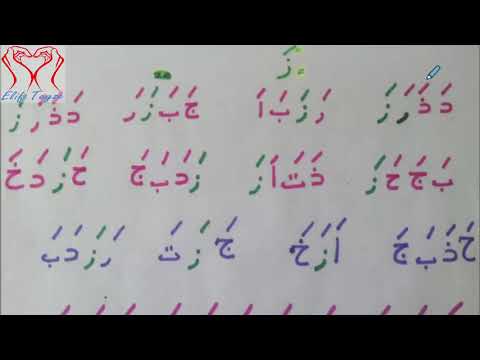 زَ =
دَ ذَ رَ زَ رَ زَ بَ اَ جَ بَ زَ رَ دَ ذَ رَ زَ
بَ جَ حَ زَ ذَ تَ اَ زَ زَ دَ بَ جَ حَ زَ دَ خَ
حَ ذَ بَ جَ اَ زَ خَ جَ زَ تَ رَ زَ دَ بَ